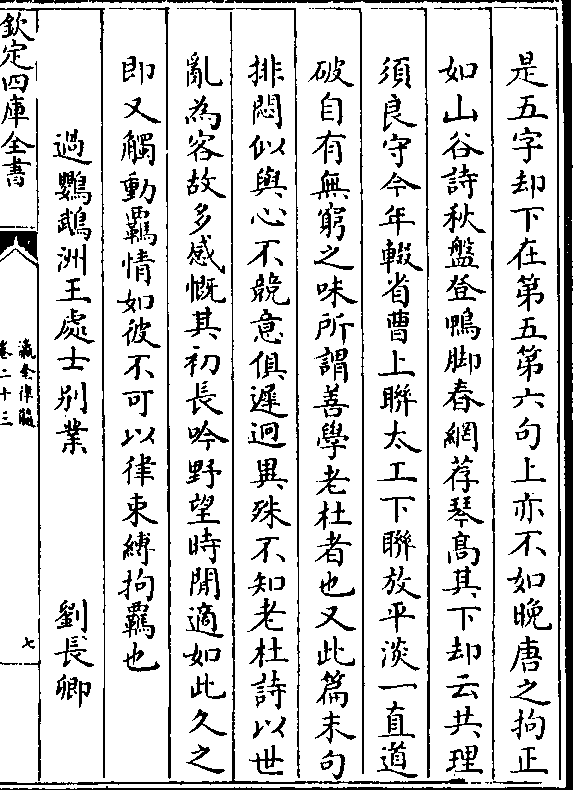 是五字却下在第五第六句上亦不如晚唐之拘正
如山谷詩秋盤登鴨脚春網荐琴髙其下却云共理
須良守今年輟省曹上聨太工下聨放平淡一直道
破自有無窮之味所謂善學老杜者也又此篇末句
排悶似與心不競意俱遲迥異殊不知老杜詩以世
亂為客故多感慨其初長吟野望時閒適如此久之
即又觸動羈情如彼不可以律束縛拘羈也
過鸚鵡洲王處士别業　劉長卿
欽定四庫全書
瀛奎律髓
卷二十三
七